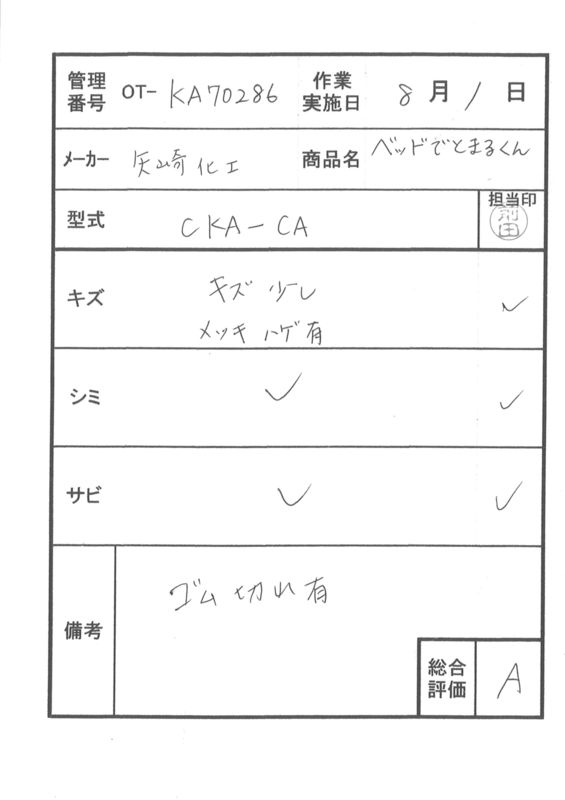 管理番号 OT- KA70286 作業実施日 8月1日
メーカー 矢崎化工 商品名 ベッドでとまるくん
型式 CKA-CA 担当印 前田
キズ キズ 少し ✓
メッキ ハゲ 有
シミ ✓ ✓
サビ ✓ ✓
備考 ゴム 切れ 有
総合評価 A